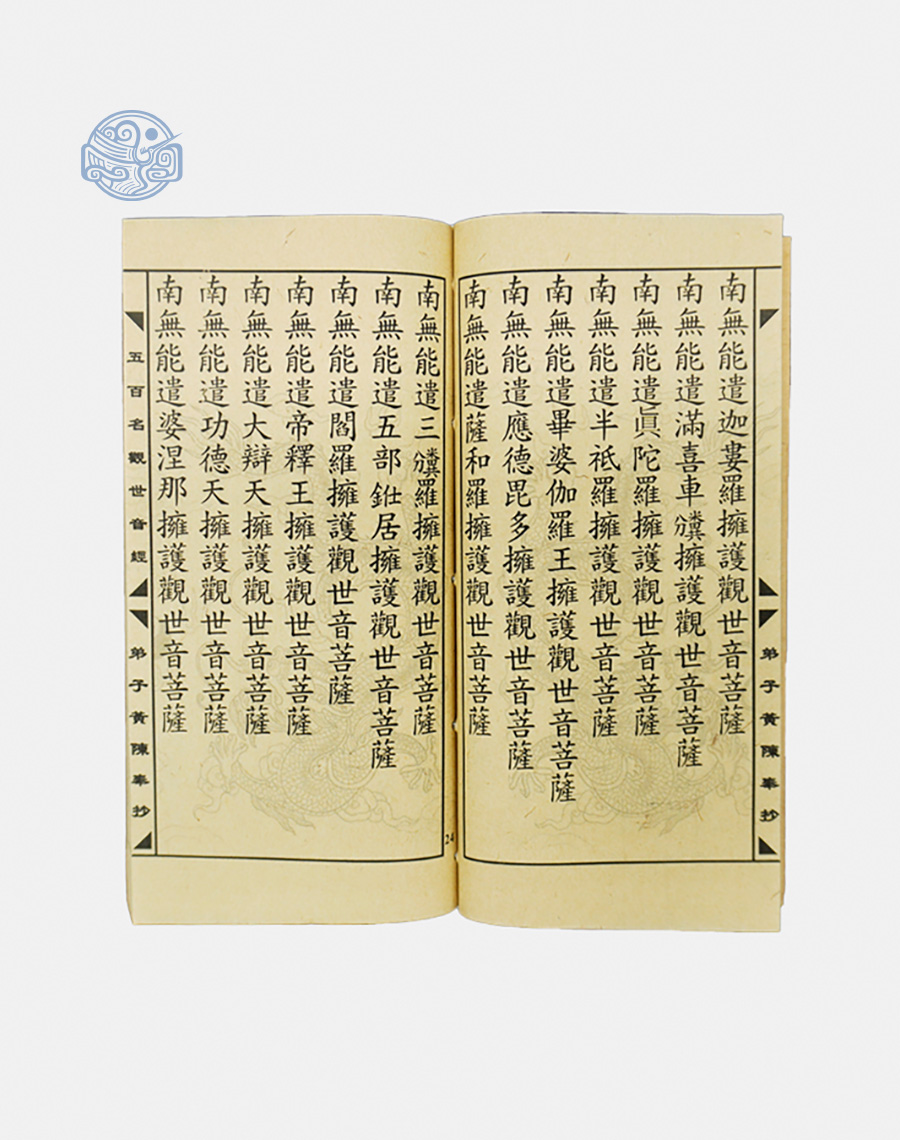 弟子黃陳奉抄
南無能遣迦婁羅擁護觀世音菩薩
南無能遣滿喜車擁護觀世音菩薩
南無能遣眞陀羅擁護觀世音菩薩
南無能遣半祇羅擁護觀世音菩薩
南無能遣畢婆伽羅王擁護觀世音菩薩
南無能遣應德毘多擁護觀世音菩薩
南無能遣薩和羅擁護觀世音菩薩
24
南無能遣三羅擁護觀世音菩薩
南無能遣五部居擁護觀世音菩薩
南無能遣閻羅擁護觀世音菩薩
南無能遣帝釋王擁護觀世音菩薩
南無能遣大辯天擁護觀世音菩薩
南無能遣功德天擁護觀世音菩薩
南無能遣婆涅那擁護觀世音菩薩
五百名觀世音經
弟子黃陳奉抄